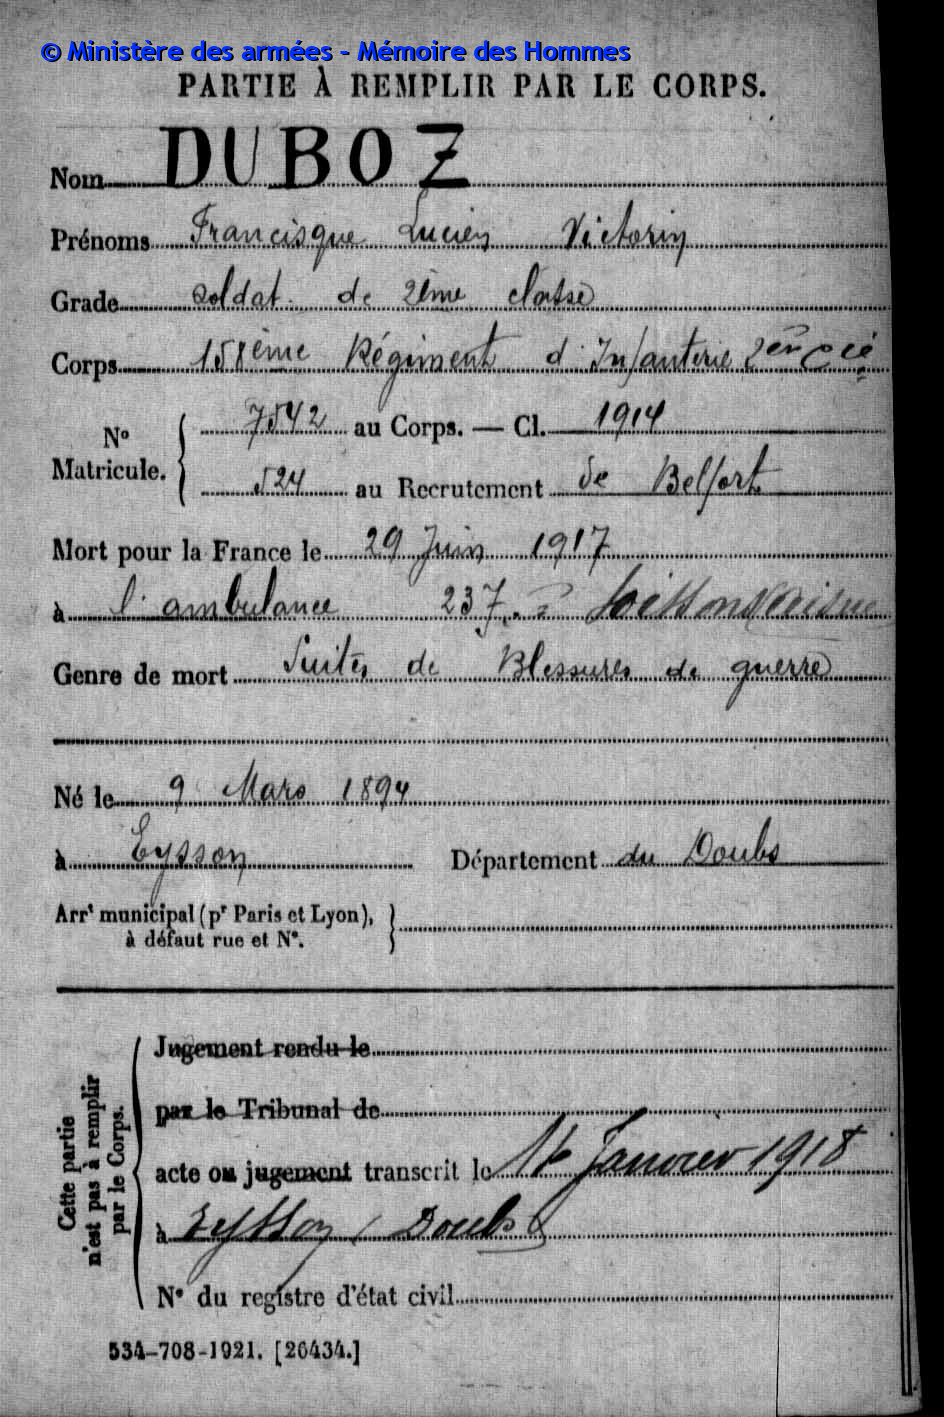 © Ministère des armées - Mémoire des Hommes
PARTIE À REMPLIR PAR LE CORPS.
Nom DUBOZ
Prénoms Francisque Lucien Victorin
Grade soldat de 2ème classe
Corps 158ème Régiment d'Infanterie 2em Cie
N° Matricule. { 7542 au Corps. — Cl. 1914
524 au Recrutement de Belfort
Mort pour la France le 29 Juin 1917
à l'ambulance 237 Soissons (Aisne
Genre de mort Suites de Blessures de guerre
Né le 9 Mars 1894
à Eysson Département du Doubs
Arrt municipal (pr Paris et Lyon),
à défaut rue et N°.
Cette partie
n'est pas à remplir
par le Corps.
Jugement rendu le
par le Tribunal de
acte ou jugement transcrit le Janvier 1918
à Eysson (Doubs)
N° du registre d'état civil
534-708-1921. [26434.]